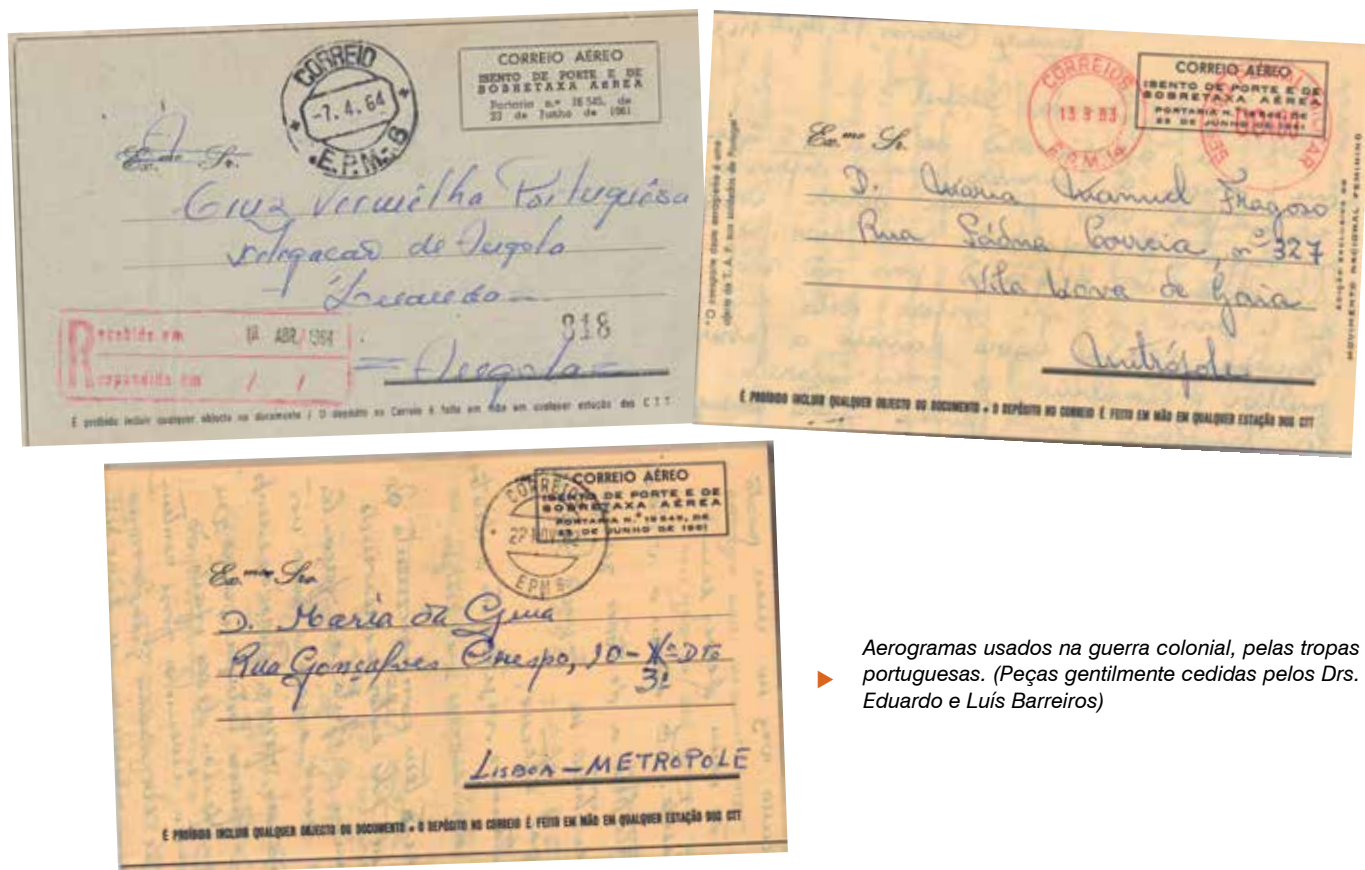 CORREIO
-7.4.64
E.P.M.-8
CORREIO AÉREO
ISENTO DE PORTE E DE
SOBRETAXA AEREA
Portaria n.º 18 545, de
23 de Junho de 1961
Ex.mo Sr.
Cruz Vermelha Portuguêsa
Delegacao de Angola
Luanda
R ecebido em 18 ABR. 1964
Respondido em / /
918
= Angola =
É proibido incluir qualquer objecto ou documento / O depósito no Correio é feito em mão em qualquer estação dos C T T
CORREIOS
E.P.M. 14
CORREIO AÉREO
ISENTO DE PORTE E DE
SOBRETAXA AÉREA
PORTARIA N.º 18 545, DE
23 DE JUNHO DE 1961
Ex.mo Sr.
D. Maria Manuel Fragoso
Rua Correia, nº 327
Vila Nova de Gaia
Metrópole
"O transporte deste aerograma é uma
oferta da T. A. P. aos soldados de Portugal"
EDIÇÃO EXCLUSIVA DO
MOVIMENTO NACIONAL FEMININO
É PROIBIDO INCLUIR QUALQUER OBJECTO OU DOCUMENTO • O DEPÓSITO NO CORREIO É FEITO EM MÃO EM QUALQUER ESTAÇÃO DOS CTT
CORREIO
22 NOV
E.P.M.
CORREIO AÉREO
ISENTO DE PORTE E DE
SOBRETAXA AÉREA
PORTARIA N.º 18 545, DE
23 DE JUNHO DE 1961
Ex.mo Sr.
D. Maria da
Rua Gonçalves Crespo, 10 - Dto
3º
LISBOA — METROPOLE
É PROIBIDO INCLUIR QUALQUER OBJECTO OU DOCUMENTO • O DEPÓSITO NO CORREIO É FEITO EM MÃO EM QUALQUER ESTAÇÃO DOS CTT
Aerogramas usados na guerra colonial, pelas tropas
portuguesas. (Peças gentilmente cedidas pelos Drs.
Eduardo e Luís Barreiros)